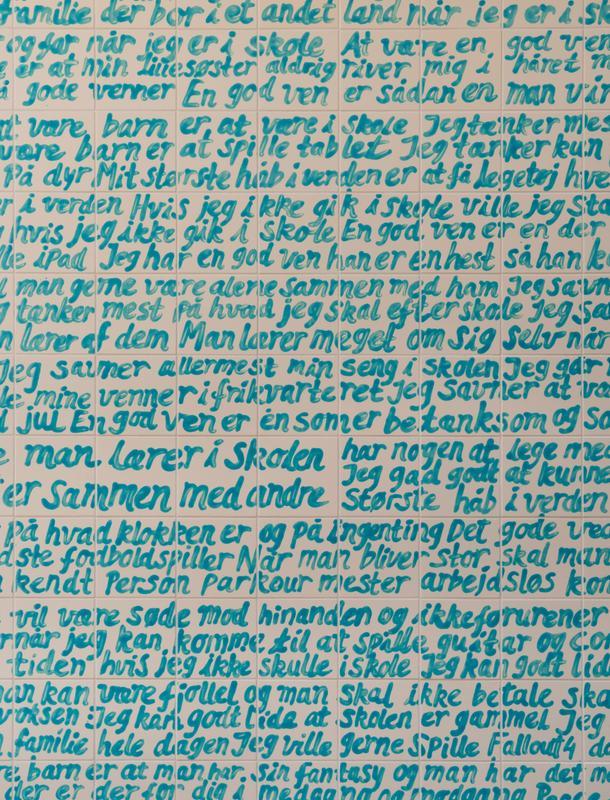 familie der bor i et andet land når jeg er i sk
og far når jeg er i skole At være en god ven
er at min lillesøster aldrig river mig i håret m
gode venner En god ven er sådan en man vi
være barn er at være i skole Jeg tænker mes
være barn er at spille tablet Jeg tænker kun
På dyr Mit største håb i verden er at få legetøj hve
er i verden Hvis jeg ikke gik i skole ville jeg sta
hvis jeg ikke gik i skole En god ven er en der
lle iPad Jeg har en god ven han er en hest så han k
man gerne være alene sammen med ham Jeg savn
tænker mest på hvad jeg skal efter skole Jeg sa
lærer af dem Man lærer meget om sig selv når
Jeg savner allermest min seng i skolen Jeg går
mine venner i frikvarteret Jeg savner at vå
jul En god ven er en som er betænksom og så
man lærer i skolen har nogen at lege med
er sammen med andre Jeg gad godt at kunne
Største håb i verden
på hvad klokken er og på ingenting Det gode ved
dste fodboldspiller Når man bliver stor skal man
kendt Person Parkour mester arbejdsløs kom
vil være søde mod hinanden og ikke forurener
når jeg kan komme til at spille guitar og co
tiden hvis jeg ikke skulle i skole Jeg kan godt lid
man kan være fjollet og man skal ikke betale ska
voksen :Jeg kan godt lide at skolen er gammel Jeg
familie hele dagen Jeg ville gerne Spille Fallout4 d
re barn er at man har sin fantasy og man har det m
der er der for dig i medgang og modgang Peace